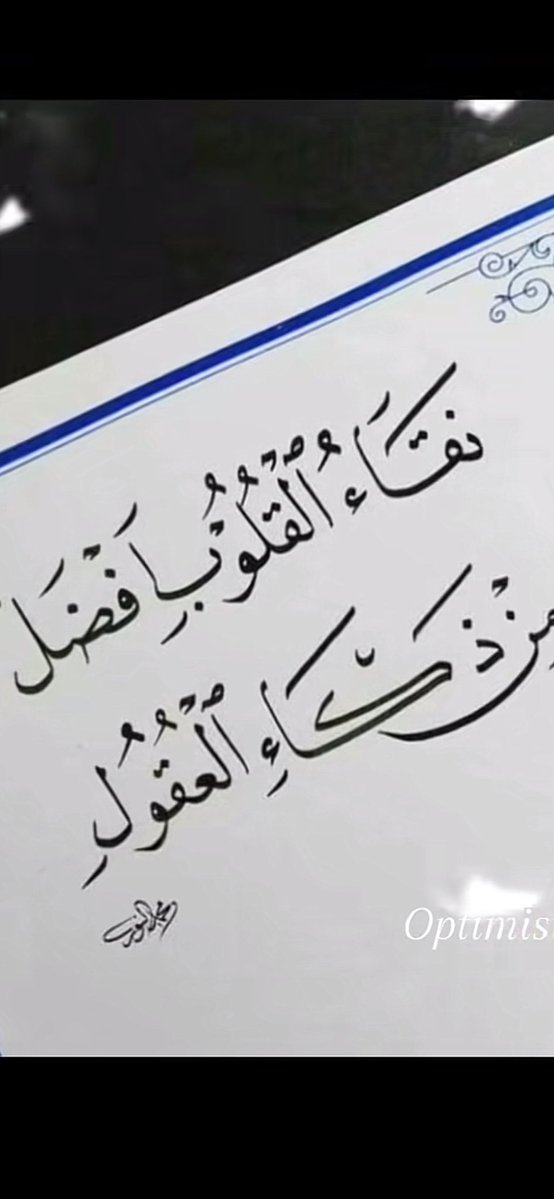 نَقَاءُ الْقُلُوْبِ اَفْضَلُ
مِنْ ذَكَاءِ الْعُقُوْلِ
Optimis